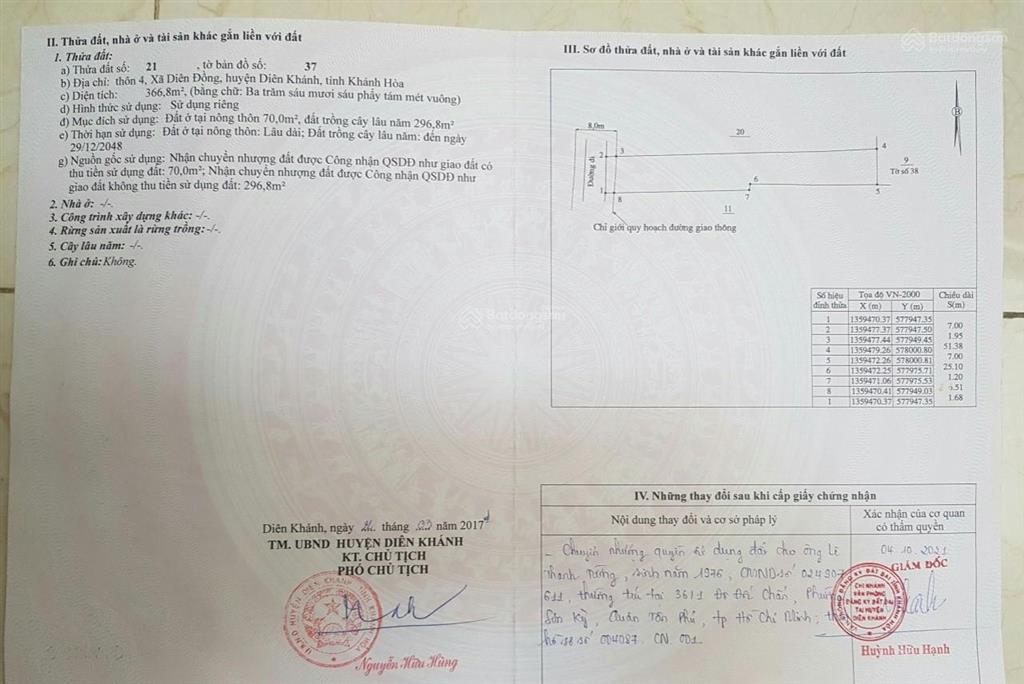 II. Thửa đất, nhà ở và tài sản khác gắn liền với đất
1. Thửa đất:
a) Thửa đất số: 21 , tờ bản đồ số: 37
b) Địa chỉ: thôn 4, Xã Diên Đồng, huyện Diên Khánh, tỉnh Khánh Hòa
c) Diện tích: 366,8m², (bằng chữ: Ba trăm sáu mươi sáu phẩy tám mét vuông)
d) Hình thức sử dụng: Sử dụng riêng
đ) Mục đích sử dụng: Đất ở tại nông thôn 70,0m², đất trồng cây lâu năm 296,8m²
e) Thời hạn sử dụng: Đất ở tại nông thôn: Lâu dài; Đất trồng cây lâu năm: đến ngày
29/12/2048
g) Nguồn gốc sử dụng: Nhận chuyển nhượng đất được Công nhận QSDĐ như giao đất có
thu tiền sử dụng đất: 70,0m²; Nhận chuyển nhượng đất được Công nhận QSDĐ như
giao đất không thu tiền sử dụng đất: 296,8m²
2. Nhà ở: -/-.
3. Công trình xây dựng khác: -/-.
4. Rừng sản xuất là rừng trồng:-/-.
5. Cây lâu năm: -/-.
6. Ghi chú: Không.
Diên Khánh, ngày tháng 03 năm 2017
TM. UBND HUYỆN DIÊN KHÁNH
KT. CHỦ TỊCH
PHÓ CHỦ TỊCH
Nguyễn Hữu Hùng
III. Sơ đồ thửa đất, nhà ở và tài sản khác gắn liền với đất
Batdongsan
B
8,0m
20
Đường đi
2
3
4
9
Tờ số 38
1
8
6
7
5
11
Chỉ giới quy hoạch đường giao thông
Số hiệu đỉnh thửa Tọa độ VN-2000 Chiều dài
X (m) Y (m) S(m)
1 1359470.37 577947.35
7.00
2 1359477.37 577947.50
1.95
3 1359477.44 577949.45
51.38
4 1359479.26 578000.80
7.00
5 1359472.26 578000.81
25.10
6 1359472.25 577975.71
1.20
7 1359471.06 577975.53
.51
8 1359470.41 577949.03
1.68
1 1359470.37 577947.35
Batdongsan
IV. Những thay đổi sau khi cấp giấy chứng nhận
Nội dung thay đổi và cơ sở pháp lý
Xác nhận của cơ quan
có thẩm quyền
- Chuyển nhượng quyền sử dụng đất cho ông Lê
Thanh Tường, sinh năm 1976, CMND số 024907
611, thường trú tại 36/1 Đô Đốc Chấn, Phường
Sơn Kỳ, Quận Tân Phú, tp Hồ Chí Minh; theo
hồ sơ số 004087. CN 001.
04.10.2021
GIÁM ĐỐC
CHI NHÁNH
VĂN PHÒNG
ĐĂNG KÝ ĐẤT ĐAI
TẠI HUYỆN
DIÊN KHÁNH
Huỳnh Hữu Hạnh